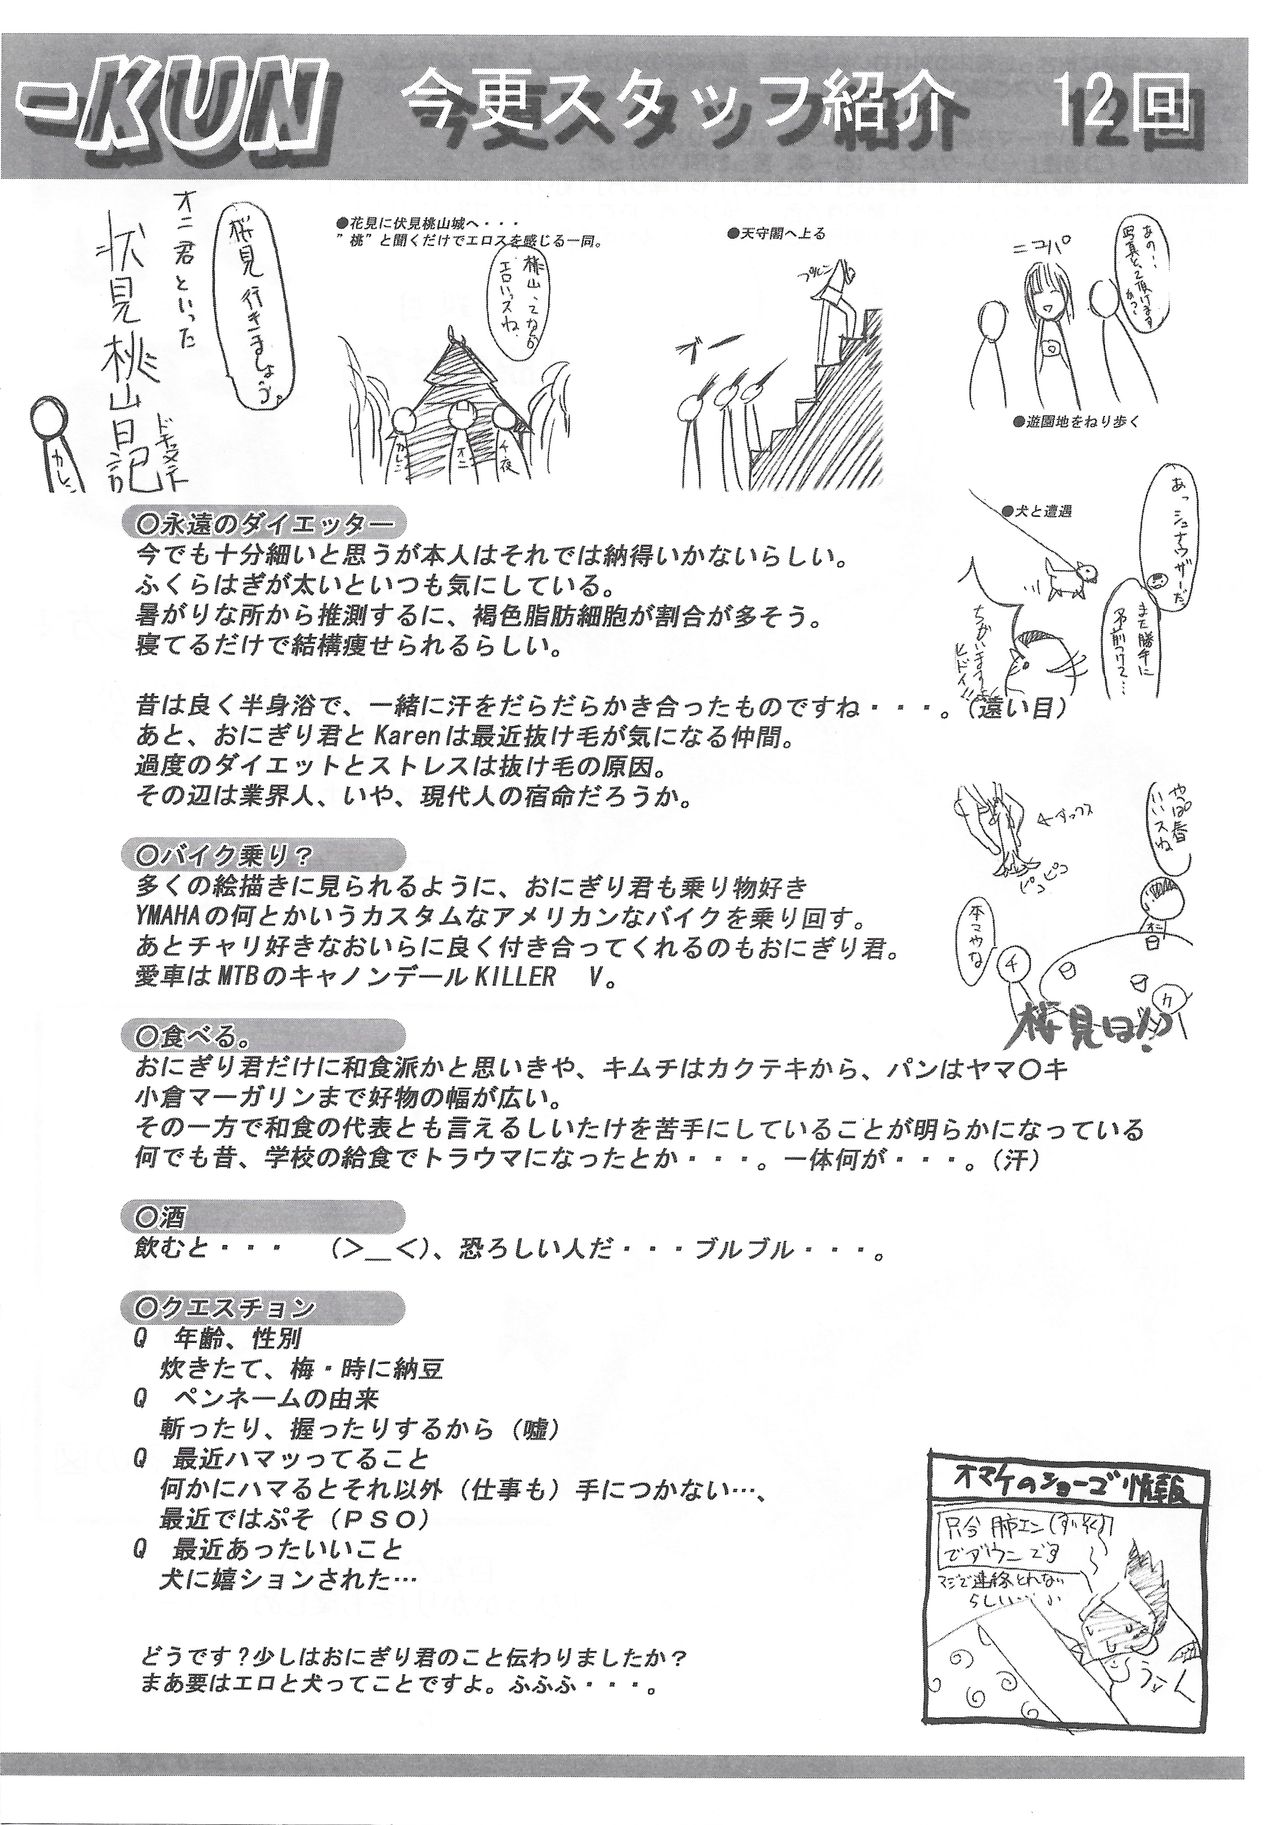 -KUN 今更スタッフ紹介 12回
オニ君といった
伏見桃山日記
ドキュメント
カレン
桜見行きましょう。
●花見に伏見桃山城へ・・・
”桃”と聞くだけでエロスを感じる一同。
桃山ってなんか
エロいっスね
カレン
オニ
千夜
●天守閣へ上る
プルルン
ブー
ニコパ
あの・・
写真とって頂けます
かっ?
●遊園地をねり歩く
●犬と遭遇
あっシュナウザーだ
また勝手に
名前つけて…
ちがいますよ
ヒドイ!!
○永遠のダイエッター
今でも十分細いと思うが本人はそれでは納得いかないらしい。
ふくらはぎが太いといつも気にしている。
暑がりな所から推測するに、褐色脂肪細胞が割合が多そう。
寝てるだけで結構痩せられるらしい。
昔は良く半身浴で、一緒に汗をだらだらかき合ったものですね・・・。(遠い目)
あと、おにぎり君とKarenは最近抜け毛が気になる仲間。
過度のダイエットとストレスは抜け毛の原因。
その辺は業界人、いや、現代人の宿命だろうか。
←ダックス
ピコピコ
やっぱ春
いいスね
本マやな
オニ
チ
カ
桜見は!?
○バイク乗り？
多くの絵描きに見られるように、おにぎり君も乗り物好き
YMAHAの何とかいうカスタムなアメリカンなバイクを乗り回す。
あとチャリ好きなおいらに良く付き合ってくれるのもおにぎり君。
愛車はMTBのキャノンデールKILLER　V。
○食べる。
おにぎり君だけに和食派かと思いきや、キムチはカクテキから、パンはヤマ○キ
小倉マーガリンまで好物の幅が広い。
その一方で和食の代表とも言えるしいたけを苦手にしていることが明らかになっている
何でも昔、学校の給食でトラウマになったとか・・・。一体何が・・・。(汗)
○酒
飲むと・・・　（＞＿＜）、恐ろしい人だ・・・ブルブル・・・。
○クエスチョン
Q　年齢、性別
炊きたて、梅・時に納豆
Q　ペンネームの由来
斬ったり、握ったりするから（嘘）
Q　最近ハマッってること
何かにハマるとそれ以外（仕事も）手につかない…、
最近ではぷそ（ＰＳＯ）
Q　最近あったいいこと
犬に嬉ションされた…
どうです？少しはおにぎり君のこと伝わりましたか？
まあ要はエロと犬ってことですよ。ふふふ・・・。
オマケのショーゴ情報
只今 肺エン(すいぞく)
でダウンです
マジで連絡とれない
らしい…
うーん